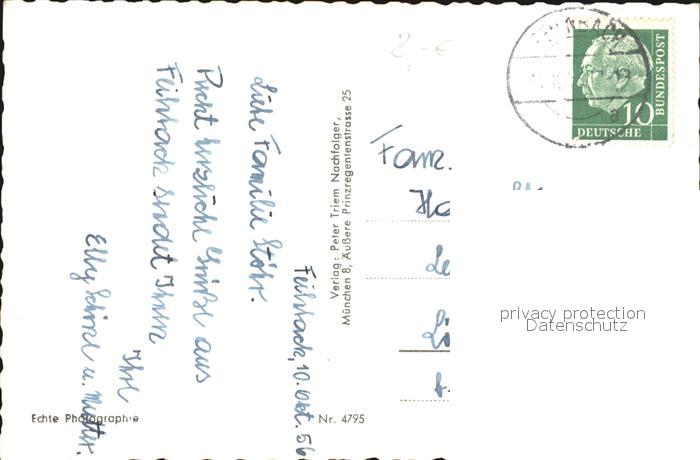 Feilnbach, 10. Okt. 56
Liebe Familie Stöhr.
Recht herzliche Grüße aus
Feilnbach sendet Ihnen
Ihre
Elly Schinzl u. Mutter.
Verlag: Peter Triem Nachfolger,
München 8, Äußere Prinzregentenstrasse 25
Echte Photographie
Nr. 4795
2,-€
Fam.
10
DEUTSCHE
BUNDESPOST
privacy protection
Datenschutz